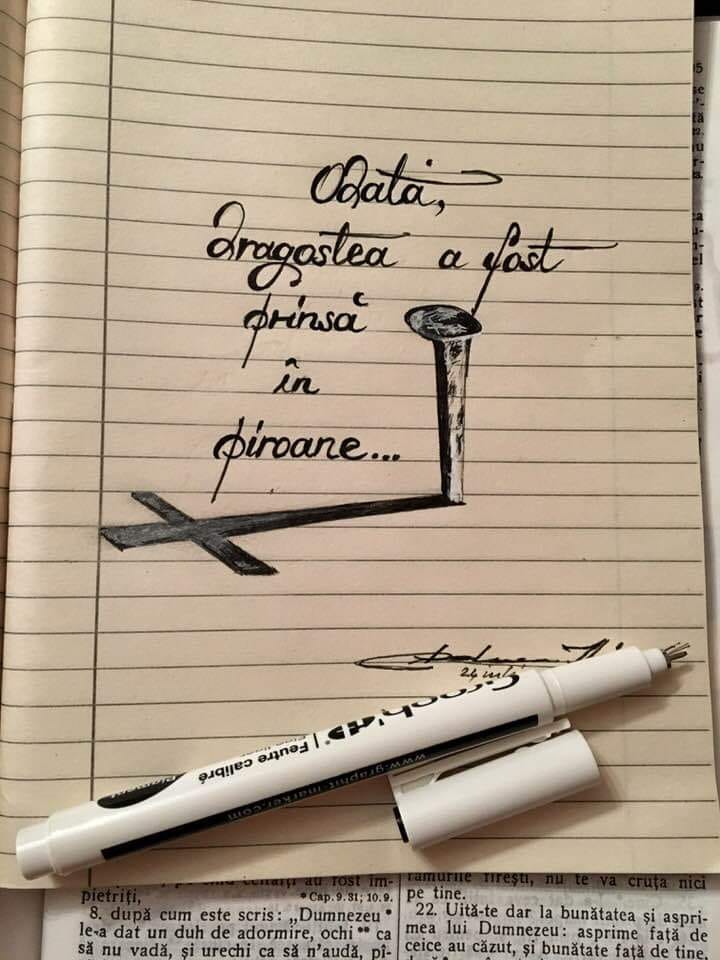 Odată,
dragostea a fost
prinsă
în
piroane...
24 iulie
Graph'it | Feutre calibré
www.graphit-marker.com
pietriți,
* Cap. 9.31; 10.9.
8. după cum este scris: „Dumnezeu *
le-a dat un duh de adormire, ochi ** ca
să nu vadă, și urechi ca să n'audă, pî-
ramurile firești, nu te va cruța nici
pe tine.
22. Uită-te dar la bunătatea și aspri-
mea lui Dumnezeu: asprime față de
ceice au căzut, și bunătate față de tine,